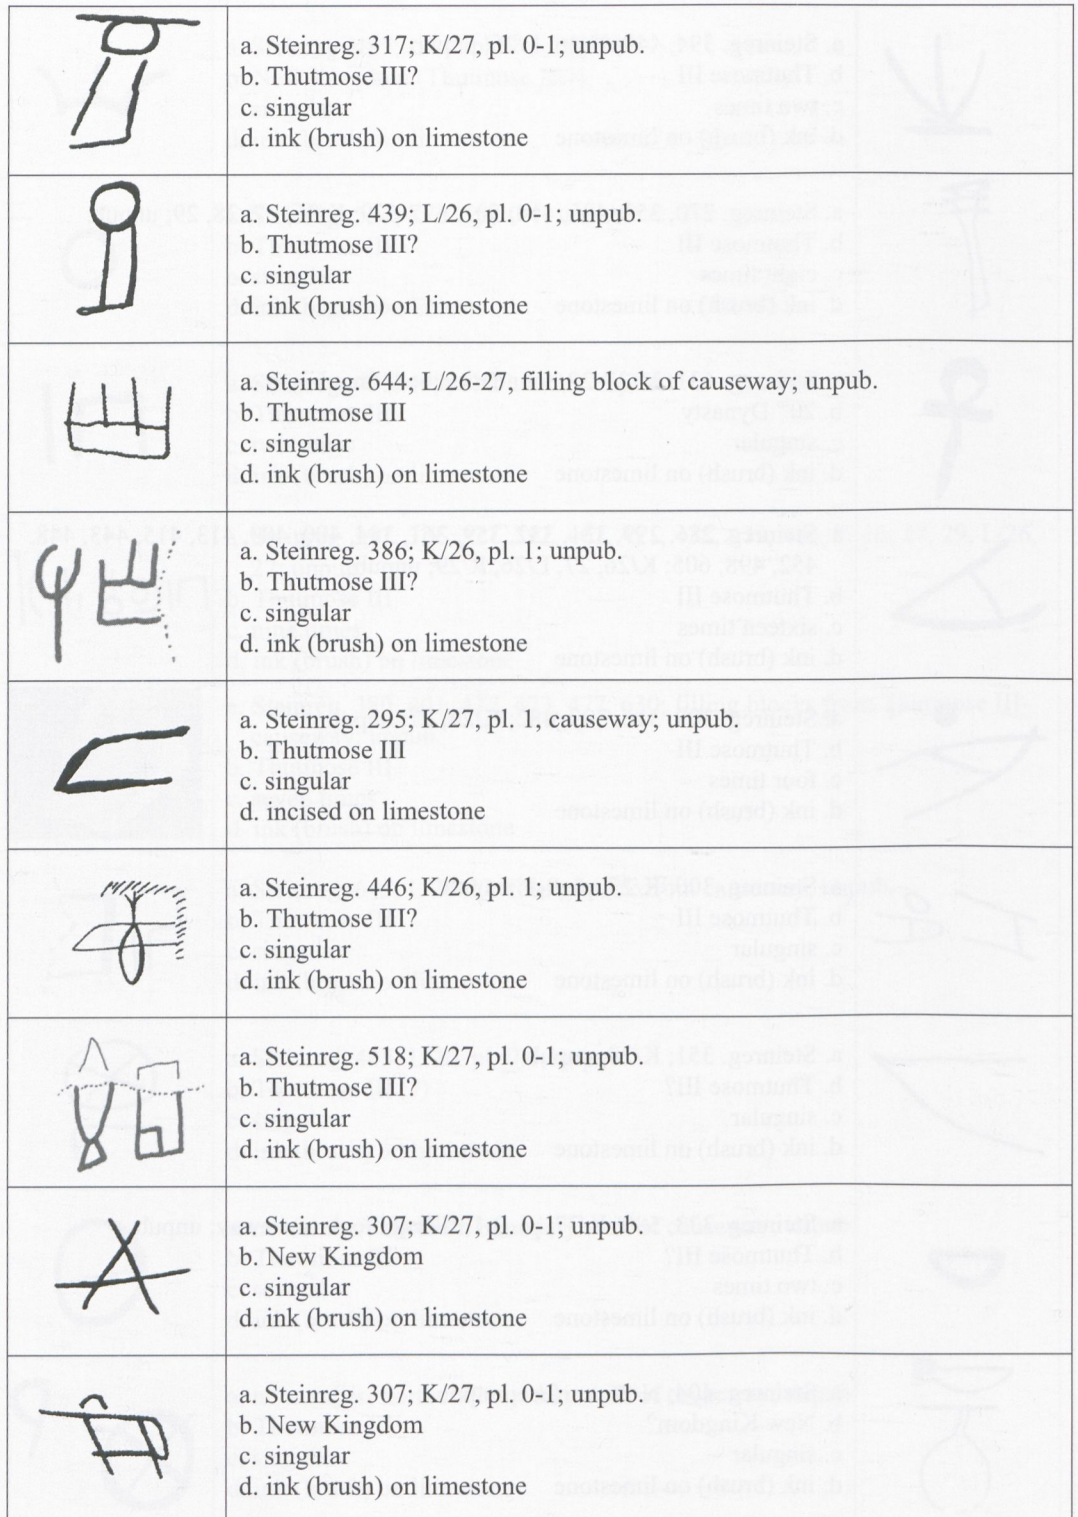 a. Steinreg. 317; K/27, pl. 0-1; unpub.
b. Thutmose III?
c. singular
d. ink (brush) on limestone
a. Steinreg. 439; L/26, pl. 0-1; unpub.
b. Thutmose III?
c. singular
d. ink (brush) on limestone
a. Steinreg. 644; L/26-27, filling block of causeway; unpub.
b. Thutmose III
c. singular
d. ink (brush) on limestone
a. Steinreg. 386; K/26, pl. 1; unpub.
b. Thutmose III?
c. singular
d. ink (brush) on limestone
a. Steinreg. 295; K/27, pl. 1, causeway; unpub.
b. Thutmose III
c. singular
d. incised on limestone
a. Steinreg. 446; K/26, pl. 1; unpub.
b. Thutmose III?
c. singular
d. ink (brush) on limestone
a. Steinreg. 518; K/27, pl. 0-1; unpub.
b. Thutmose III?
c. singular
d. ink (brush) on limestone
a. Steinreg. 307; K/27, pl. 0-1; unpub.
b. New Kingdom
c. singular
d. ink (brush) on limestone
a. Steinreg. 307; K/27, pl. 0-1; unpub.
b. New Kingdom
c. singular
d. ink (brush) on limestone